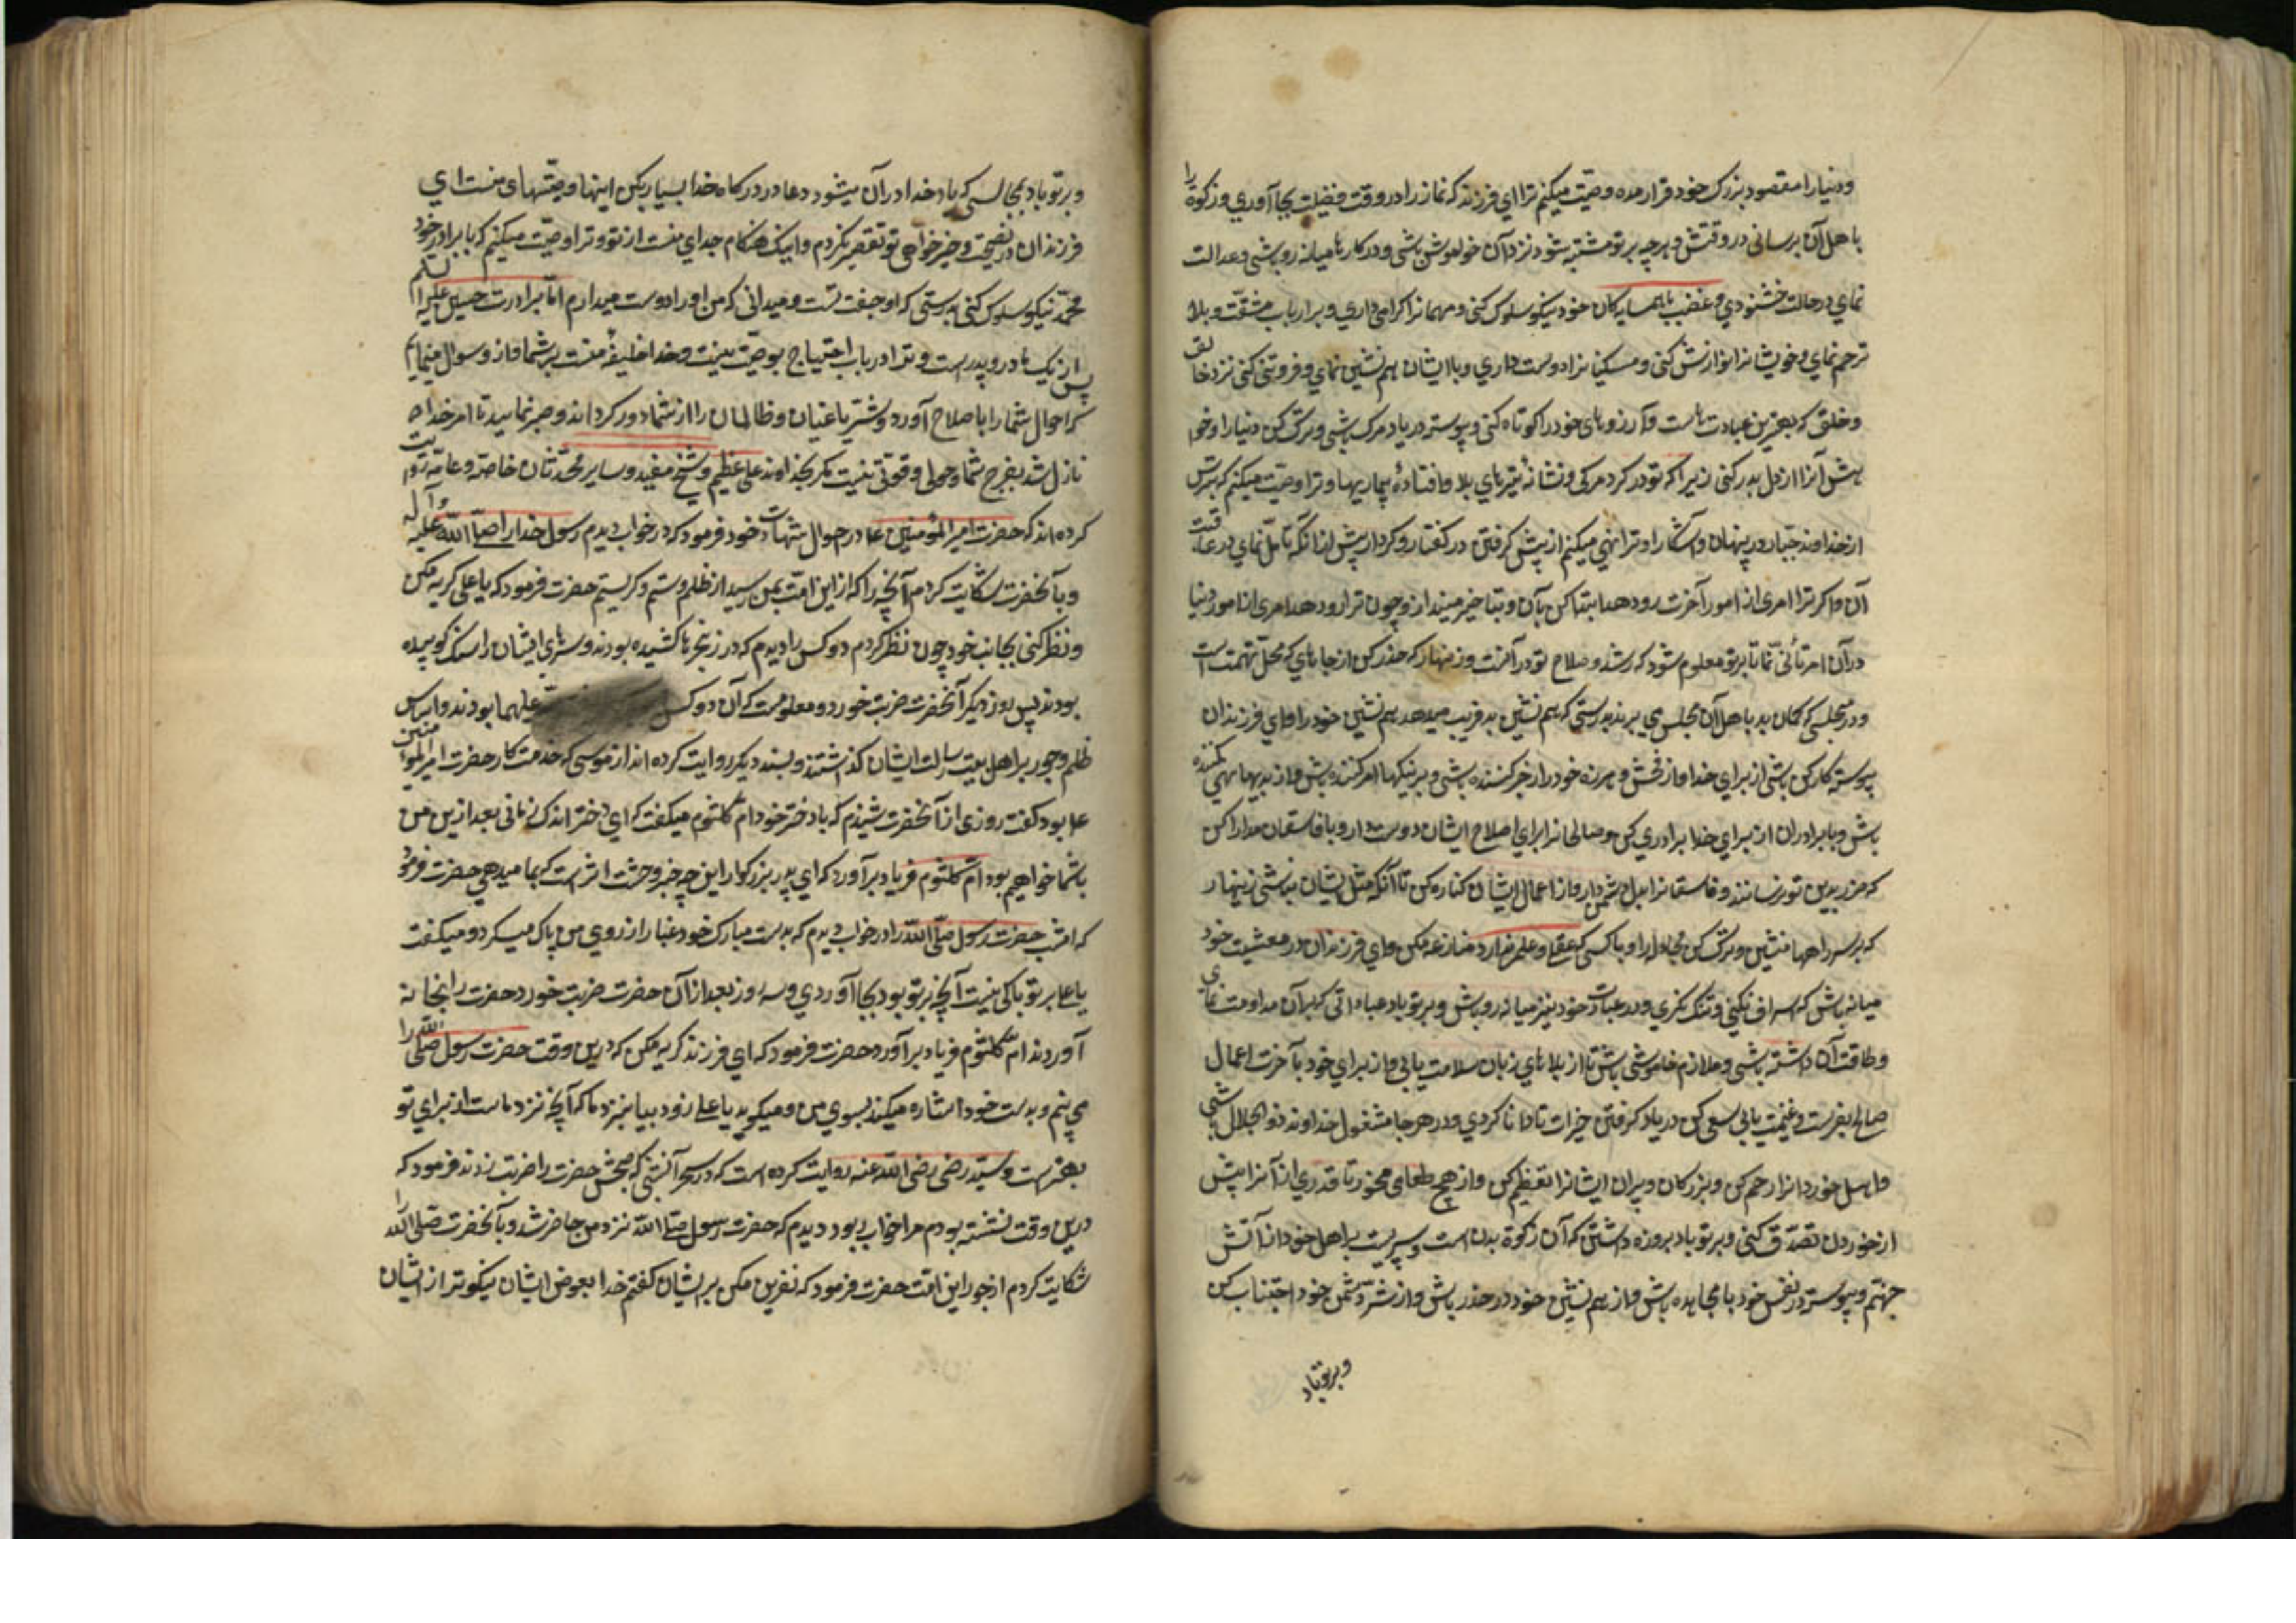 ودنیارا مقصود بزرک خود قرار مده وصیّت میکنم ترا ای فرزند که نماز را در وقت فضیلت بجا آوری و زکوة را
باهل آن برسانی در وقتش و هرچه بر تو مشتبه شود نزد آن خواموش باشی و در کارها میانه رو باشی و عدالت
نمای در حالت خشنودی و غضب با همسایکان خود نیکو سلوک کنی و مهمانرا کرامی داری و بر ارباب مشقّت و بلا
ترحم نمای و خویشانرا نوازش کنی و مسکینانرا دوست داری و با ایشان هم نشین نمای و فروتنی کنی نزد خالق
و خلق که بهترین عبادت هاست و آرزوهای خود را کوتاه کنی و پیوسته در یاد مرک باشی و ترک کن دنیا را و خوا
هش آنرا از دل بدر کنی زیرا که تو در کرو مرکی و نشانهٔ تیرهای بلا و افتادهٔ بیماریها و ترا وصیّت میکنم که بترس
از خداوند جبّار در پنهان و آشکارا و ترا نهی میکنم از پیش کرفتن در کفتار و کردار پیش از انکه تأمل نمای در عاقبت
آن و اکر ترا امری از امور آخرت رو دهد ابتدا کن بآن و بتاخیر مینداز و چون ترا رو دهد امری از امور دنیا
در آن امر تأنّی نما تا بر تو معلوم شود که رشد و صلاح تو در آنست و زینهار که حذر کن از جاهای که محلّ تهمت است
و در مجلسی که کمان بد باهل آن مجلس می برند بدرستی که هم نشین بد فریب میدهد هم نشین خود را و ای فرزندان
پیوسته کارکن باشی از برای خدا و از فحش و هرزه خود را زجر کننده باشی و به نیکیها امر کننده باش و از بدیها نهی کننده
باش و با برادران از برای خدا برادری کن و صالحانرا برای اصلاح ایشان دوست دار و با فاسقان مدارا کن
که ضرر بدین تو نرسانند و فاسقانرا بدل دشمن دار و از اعمال ایشان کناره کن تا آنکه مثل ایشان نباشی زینهار
که بر سر راهها منشین و ترک کن مجادله را و با کسی که عقل و علم ندارد منازعه مکن و ای فرزندان در معیشت خود
میانه باش که اسراف نکنی و تنک نکری و در عبادت خود نیز میانه رو باش و بر تو باد عباداتی که بر آن مداومت نمای
و طاقت آن داشته باشی و ملازم خاموشی باش تا از بلاهای زبان سلامت یابی و از برای خود بآخرت اعمال
صالح بفرست و غنیمت یابی سعی کن در یاد کرفتن خیرات تا دانا کردی و در هر جا مشغول خداوند ذو الجلال باشی
و اهل خوردانرا رحم کن و بزرکان و پیران ایشانرا تعظیم کن و از هیچ طعامی مخور تا قدری از آنرا پیش
از خوردن تصدّق کنی و بر تو باد بروزه داشتن که آن زکوة بدن است و سپریست براهل خود از آتش
جهنّم و پیوسته در نفس خود با مجاهده باش و از هم نشین خود در حذر باش و از شرّ دشمن خود اجتناب کن
و بر تو باد
و بر تو باد بمجالسی که یاد خدا در آن میشود دعا در درکاه خدا بسیار بکن اینها وصیّتهای منست ای
فرزندان در نصیحت و خیرخواهی تو تقصیر نکردم و اینک هنکام جدای منست از تو و ترا وصیّت میکنم که با برادر خود
محمّد نیکو سلوک کنی بدرستی که او جفت تست و میدانی که من او را دوست میدارم امّا برادرت حسین علیه السلم
از یک مادر و پدر است و ترا در باب احتیاج بوصیّت نیست و خدا خلیفهٔ منست بر شما و از و سوال مینمایم
که احوال شما را باصلاح آورد و شرّ یاغیان و ظالمان را از شما دور کرداند و صبر نمایید تا امر خدا پس
نازل شد بفرج شما و حولی و قوّتی نیست مکر بخداوند علی عظیم و شیخ مفید و سایر محدّثان خاصّه و عامّه روایت
کرده اند که حضرت امیر المؤمنین ع در حوالی شهادت خود فرمود که در خواب دیدم رسول خدا را صلّی اللّه علیه و آله
و بآنحضرت شکایت کردم آنچه را که از این امّت بمن رسید از ظلم و ستم و کریستم حضرت فرمود که یا علی کریه مکن
و نظر کنی بجانب خود چون نظر کردم دو کس را دیدم که در زنجرها کشیده بودند و سرهای ایشان را سنک کوبیده
بودند پس روز دیکر آنحضرت ضربت خورد و معلومست که آن دو کس علیهما بودند و اساس
ظلم و جور بر اهل بیت رسالت ایشان کذاشتند و بسند دیکر روایت کرده اند از موسی که خدمت کار حضرت امیر المؤمنین
ع بود کفت روزی از آنحضرت شنیدم که با دختر خود امّ کلثوم میکفت که ای دختر اندک زمانی بعد ازین من
باشما خواهیم بود امّ کلثوم فریاد برآورد که ای پدر بزرکوار این چه خبر وحشت اثر است که بما میدهی حضرت فرمود
که امشب حضرت رسول صلّی اللّه را در خواب دیدم که بدست مبارک خود غبار از روی من پاک میکرد و میکفت
یا علی بر تو باکی نیست آنچه بر تو بود بجا آوردی و سه روز بعد از آن حضرت ضربت خورد حضرت را بخانه
آوردند امّ کلثوم فریاد برآورد حضرت فرمود که ای فرزند کریه مکن که درین وقت حضرت رسول صلّی اللّه را
می بینم و بدست خود اشاره میکند بسوی من و میکوید یا علی زود بیا بنزد ما که آنچه نزد ماست از برای تو
بهتر است و سیّد رضی رضی اللّه عنه روایت کرده است که در سحر آنشبی که صبحش حضرت را ضربت زدند فرمود که
درین وقت نشسته بودم مرا خواب ربود دیدم که حضرت رسول صلّی اللّه نزد من حاضر شد و بآنحضرت صلّی اللّه را
شکایت کردم از جور این امّت حضرت فرمود که نفرین مکن بر ایشان کفتم خدا بعوض ایشان نیکوتر از ایشان